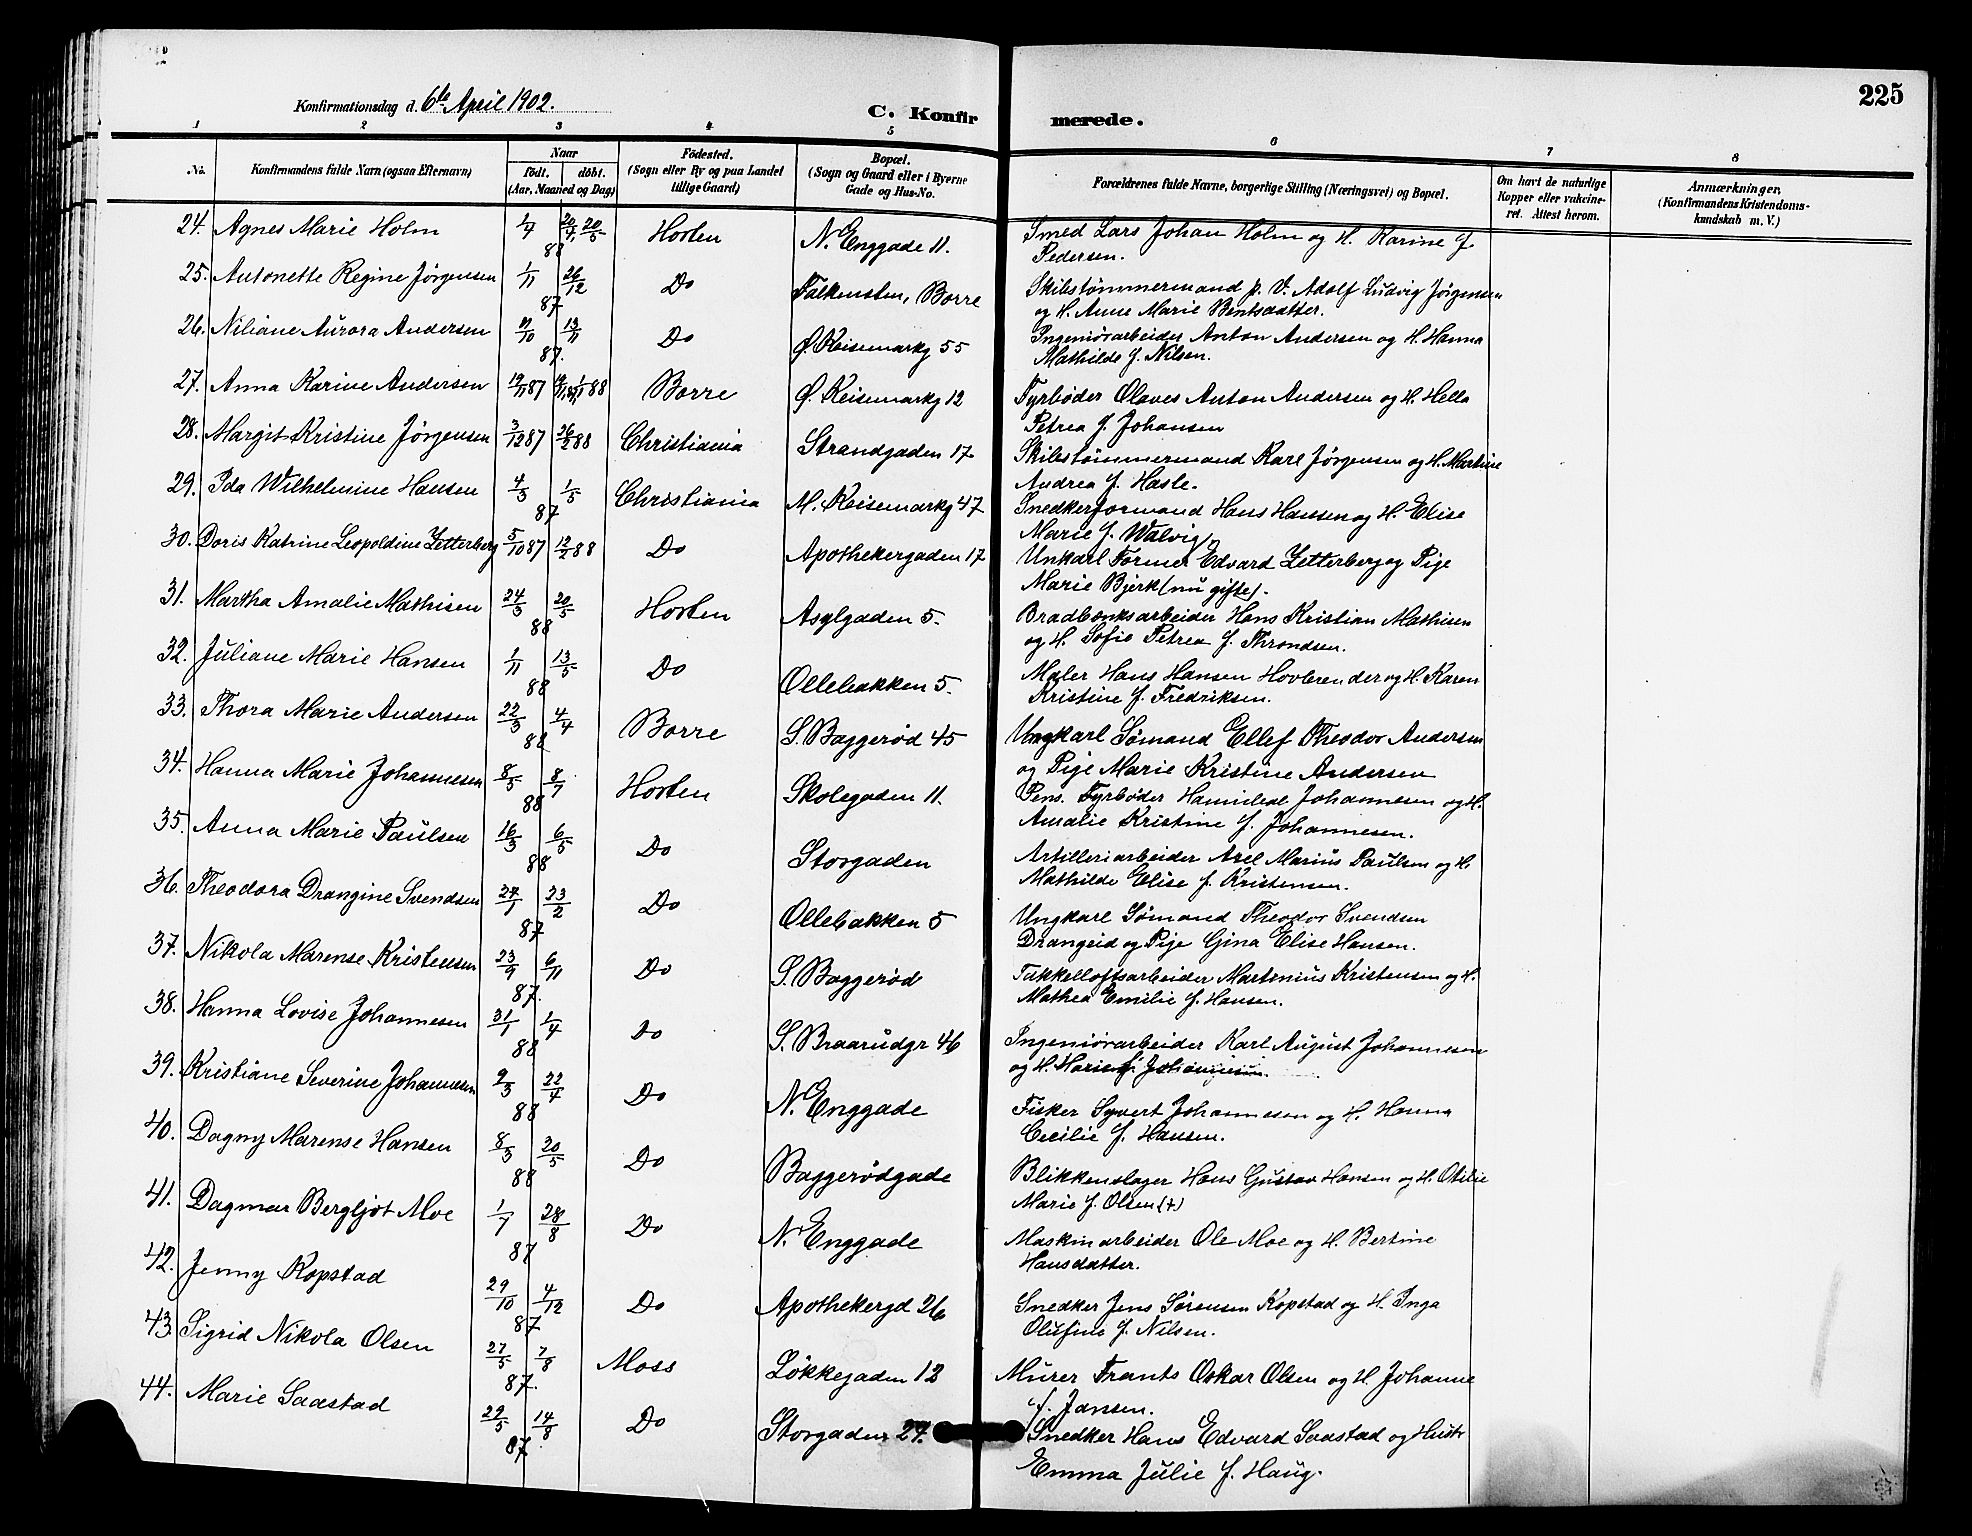 225
Konfirmationsdag d. 6te April 1902.
C. Konfirmerede.
1 2 3 4 5 6 7 8
No. Konfirmandens fulde Navn (ogsaa Efternavn) Naar født. døbt. (Aar, Maaned og Dag) Fødested. (Sogn eller By og paa Landet tillige Gaard) Bopæl. (Sogn og Gaard eller i Byerne Gade og Hus-No. Forældrenes fulde Navne, borgerlige Stilling (Næringsvei) og Bopæl. Om havt de naturlige Kopper eller vakcineret. Attest herom. Anmærkninger. (Konfirmandens Kristendomskundskab m. V.)
24. Agnes Marie Holm 88 Horten N. Enggade 11. Smed Lars Johan Holm og H. Karine f.
Pedersen.
25. Antonette Regine Jørgensen 1/11 26/12 87 Do Falkensten, Borre Skibstømmermand p. V. Adolf Ludvig Jørgensen
og H. Anne Marie Bentsdatter.
26. Niliane Aurora Andersen 13/11 87. Do Ø. Keisemarkg 55 Ingeniørarbeider Anton Andersen og H. Hanna
Mathilde f. Nilsen.
27. Anna Karine Andersen 87 88 Borre Ø. Keisemarkg 12 Fyrbøder Olaves Anton Andersen og H. Hella
Petrea f. Johansen
28. Margit Kristine Jørgensen 3/12 87 26/2 88 Christiania Strandgaden 17 Skibstømmermand Karl Jørgensen og H. Martine
Andrea f. Hasle.
29. Ida Wilhelmine Hansen 4/3 1/5 87 Christiania M. Keisemarkg 47 Snedkerformand Hans Hansen og H. Elise
Marie f. Walvig.
30. Doris Katrine Leopoldine Zetterberg 5/10 87 12/2 88 Do Apothekergaden 17 Unkarl Former Edvard Zetterberg og Pige
Marie Bjerk (nu gifte).
31. Martha Amalie Mathisen 24/3 20/5 88 Horten Asylgaden 5. Bradbænksarbeider Hans Kristian Mathisen
og H. Sofie Petrea f. Throndsen.
32. Juliane Marie Hansen 1/11 13/5 88 Do Ollebakken 5. Maler Hans Hansen Hovlerender og H. Karen
Kristine f. Fredriksen.
33. Thora Marie Andersen 22/3 4/4 88 Borre S. Baggerød 45 Ungkarl Sømand Ellef Theodor Andersen
og Pige Marie Kristine Andersen
34. Hanna Marie Johannesen 8/5 8/7 88 Horten Skolegaden 11. Pens. Fyrbøder Johannesen og H.
Amalie Kristine f. Johannesen.
35. Anna Marie Paulsen 16/3 6/5 88 Do Storgaden Artilleriarbeider Axel Marius Paulsen og H.
Mathilde Elise f. Kristensen.
36. Theodora Drangine Svendsen 27/1 23/2 87 Do Ollebakken 5 Ungkarl Sømand Theodor Svendsen
Drangeid og Pige Gina Elise Hansen.
37. Nikola Marense Kristensen 23/9 6/11 87. Do S. Baggerød Takkelloftsarbeider Martenius Kristensen og H.
Mathea Emilie f. Hansen.
38. Hanna Lovise Johannesen 31/1 1/4 88 Do S. Braarudgr 46 Ingeniørarbeider Karl August Johannesen
og H. Marie f. Johannesen.
39. Kristiane Severine Johannesen 2/3 22/4 88 Do N. Enggade Fisker Syvert Johannesen og H. Hanna
Cecilie f. Hansen.
40. Dagny Marense Hansen 8/3 20/5 88 Do Baggerødgade Blikkenslager Hans Gustav Hansen og H. Otilie
Marie f. Olsen (+)
41. Dagmar Bergljot Moe 1/7 28/8 87 Do N. Enggade Maskinarbeider Ole Moe og H. Bertine
Hansdatter.
42. Jenny Kopstad 29/10 4/12 87 Do Apothekergd 26 Snedker Jens Sørensen Kopstad og H. Inga
Olufine f. Nilsen.
43. Sigrid Nikola Olsen 27/5 7/8 87. Moss Løkkegaden 12 Murer Frants Oskar Olsen og H. Johanne
f. Jansen.
44. Marie Saastad 29/5 14/8 87. Do Storgaden 27. Snedker Hans Edvard Saastad og Hustr
Emma Julie f. Haug.